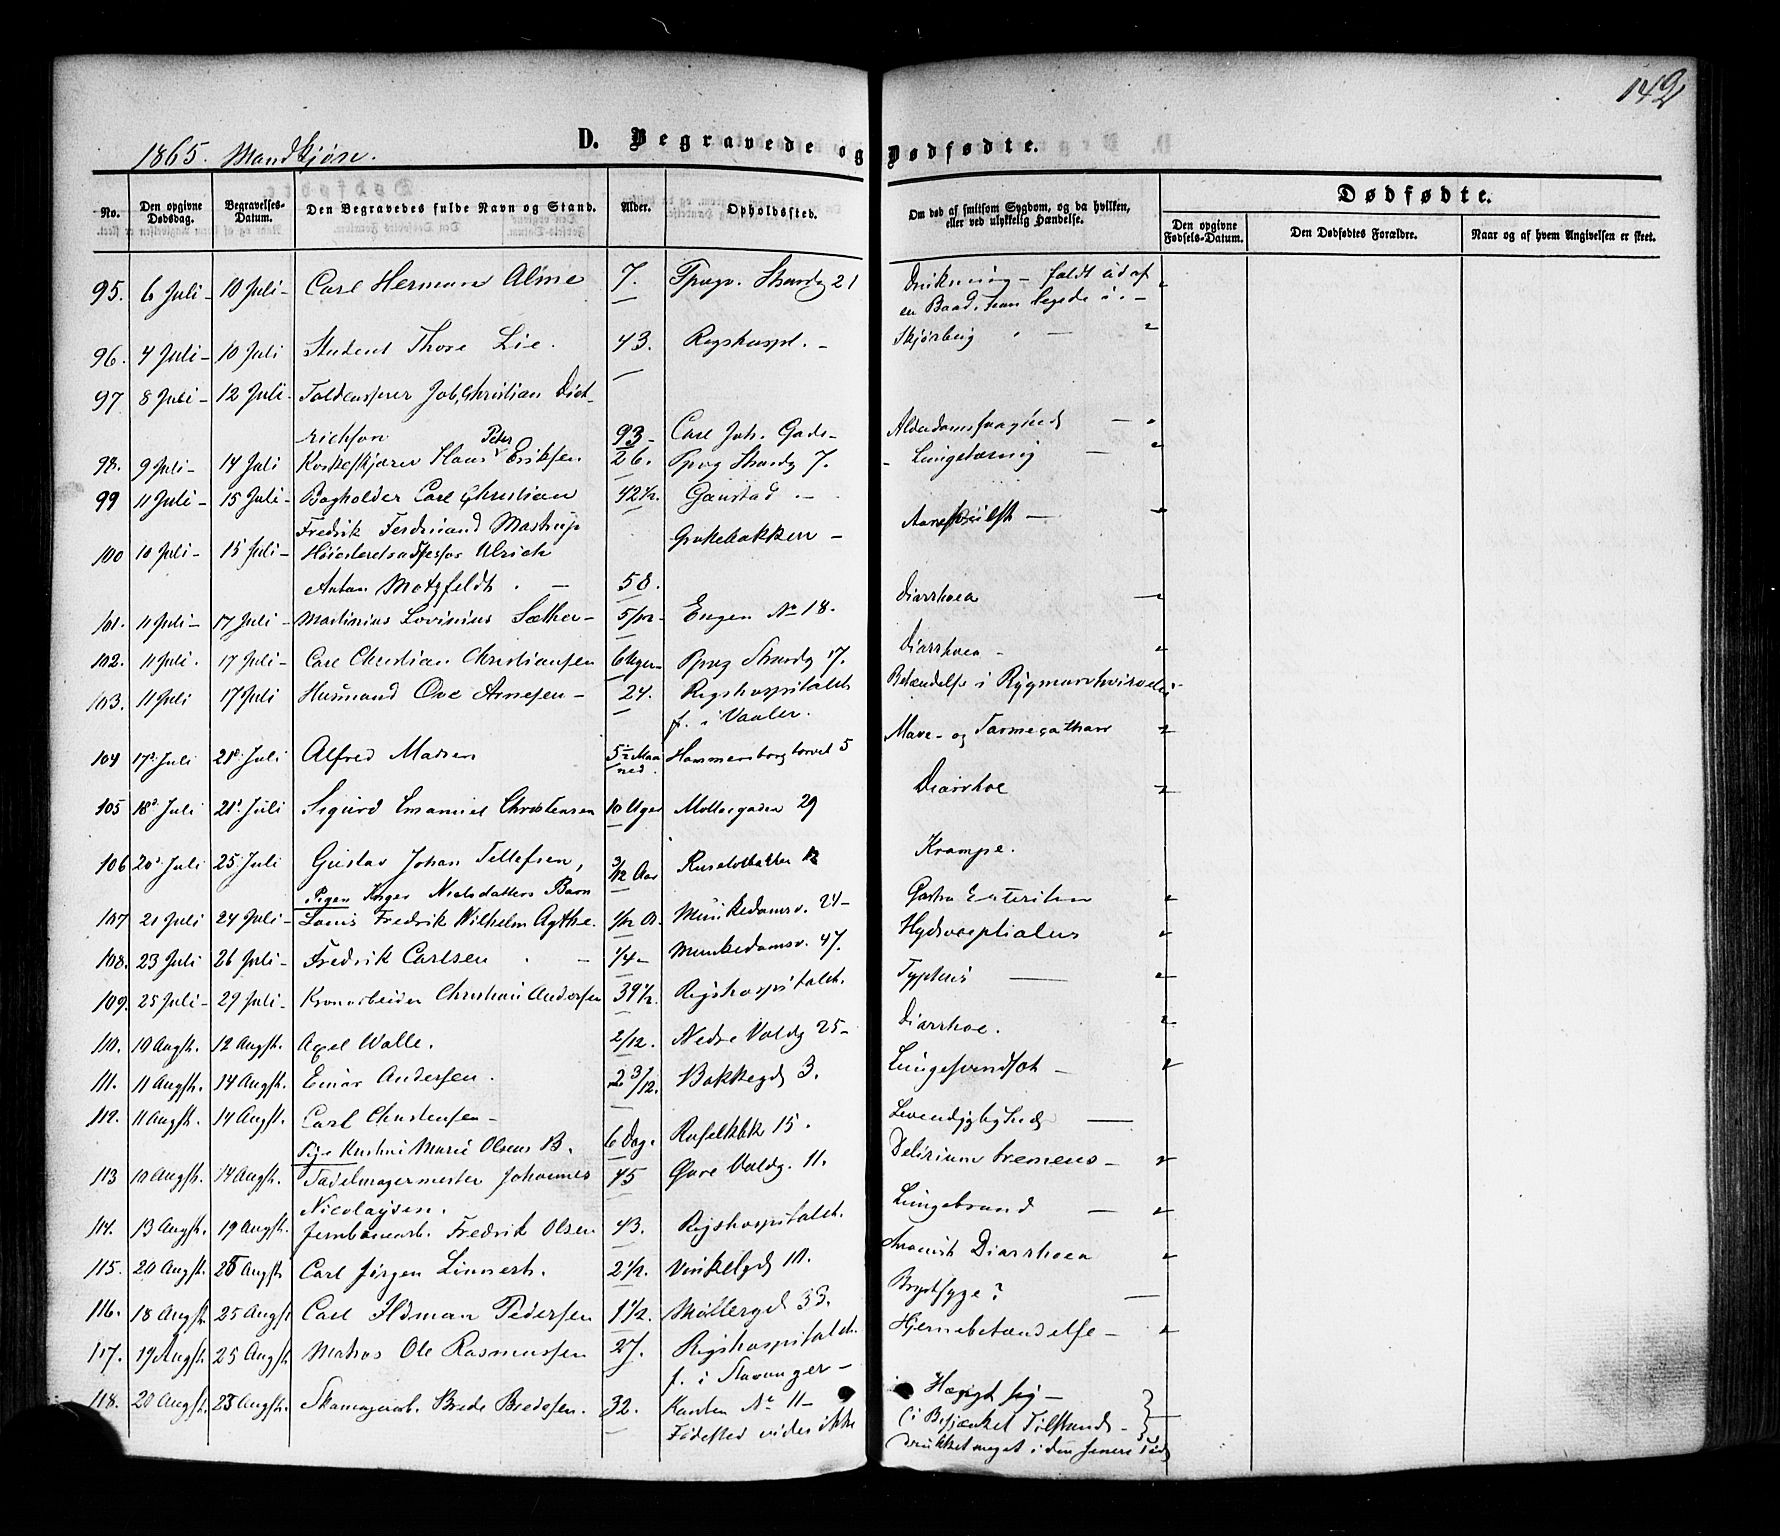 142
1865. Mandkjøn.
D. Begravede og Dødfødte.
No.
Den opgivne Dødsdag.
Begravelses-Datum.
Den Begravedes fulde Navn og Stand.
Alder.
Opholdssted.
Om død af smitsom Sygdom, og da hvilken, eller ved ulykkelig Hændelse.
Dødfødte.
Den opgivne Fødsels-Datum.
Den Dødfødtes Forældre.
Naar og af hvem Angivelsen er skeet.
95. 6 Juli - 10 Juli - Carl Herman Alme 7. Strandg 21 Drukning - faldt ud af
en Baad, han legede i. -
96. 4 Juli - 10 Juli Student Thore Lie. 43. Rigshospl. - Skjørbug -
97 8 Juli - 12 Juli. Toldcasserer Joh. Christian Diet-
richson 93 - Carl Joh. Gade - Alderdomssvaghed -
98. 9 Juli - 14 Juli Hans Peter Eriksen 26. Ppvg Strandg 7. Lungetæring -
99 11 Juli - 15 Juli - Bogholder Carl Christian 42 1/2. Gaustad -
Fredrik Ferdinand Mastrup
100 10 Juli - 15 Juli - Høiesteretsassessor Ulrich Grakebakken -
Anton Motzfeldt. - 58.
101. 11 Juli - 17 Juli - Martinius Lovinius Sæther - 5/12 - Engen No 18. Diarrhoea
102. 11 Juli. 17 Juli - Carl Christian Christiansen 6 Uger - Ppvg Strandg 17. Diarrhoea -
103. 11 Juli 17 Juli Husmand Ove Arnesen - 24. Rigshospitalet Betændelse i Rygmarvshvirvelen
f. i Vaaler.
104 17de Juli 21de Juli Alfred Madsen 5 1/2 Maaned. Hammersborg torvet 5 Mave- og Tarmecathar
105 18de Juli 21de Juli Sigurd Emanuel Christensen 10 Uger Møllergaden 29 Diarrhoe
106 20de Juli 25 Juli Gustav Johan Tellefsen, 3/12 Aar Ruseløkbakken 12 Krampe.
Pigen Inger Nielsdatters Barn
107 21 Juli 24 Juli - Louis Fredrik Wilhelm Agthe. 1/12 A. Munkedamsv. 24 -
108. 23 Juli 26 Juli - Fredrik Carlsen - 1/4 - Munkedamsv. 47. Hydrocephalus
109. 25 Juli - 29 Juli - Christian Andersen 39 1/2. Rigshospitalet. Typhus
110. 10 Augst. 12 Augst. Axel Walle. 2/12. Nedre Voldg 25 - Diarrhoe.
111. 11 Augst. 14 Augst. Einar Andersen. 2 3/12. Bakkegd 3.
112. 11 Augst. 14 Augst. Carl Christensen -
Pige Kristine Marie Olsens B. 6 Dag. Ruselkbk 15.
113 10 Augst. 14 Augst. Sadelmagermester Johannes 45 Øvre Voldg. 11. Delirium tremens -
Nicolaysen.
114. 13 Augst. 19 Augst. Jernbanearb. Fredrik Olsen 43. Rigshospitalet. Lungebrand -
115. 20 Augst. 25 Augst Carl Jørgen Linnerth. 2 1/2. Vinkelgd 10. Kronisk Diarrhoea
116. 18 Augst. 25 Augst Carl Hdman Pedersen 1 1/2. Møllergd 33. Brystsyge?
117. 19 Augst. 25 Augst. Matros Ole Rasmussen 27. Rigshospitalet. Hjernebetændelse -
f. i Stavanger -
118. 20 Augst. 25 Augst. Skomagerarb. Brede Bredesen. 32. Kanten No 11 - Hængt sig -
Fødested vides ikke (i Beskjænket Tilstand -
drukket meget i den senere Tid